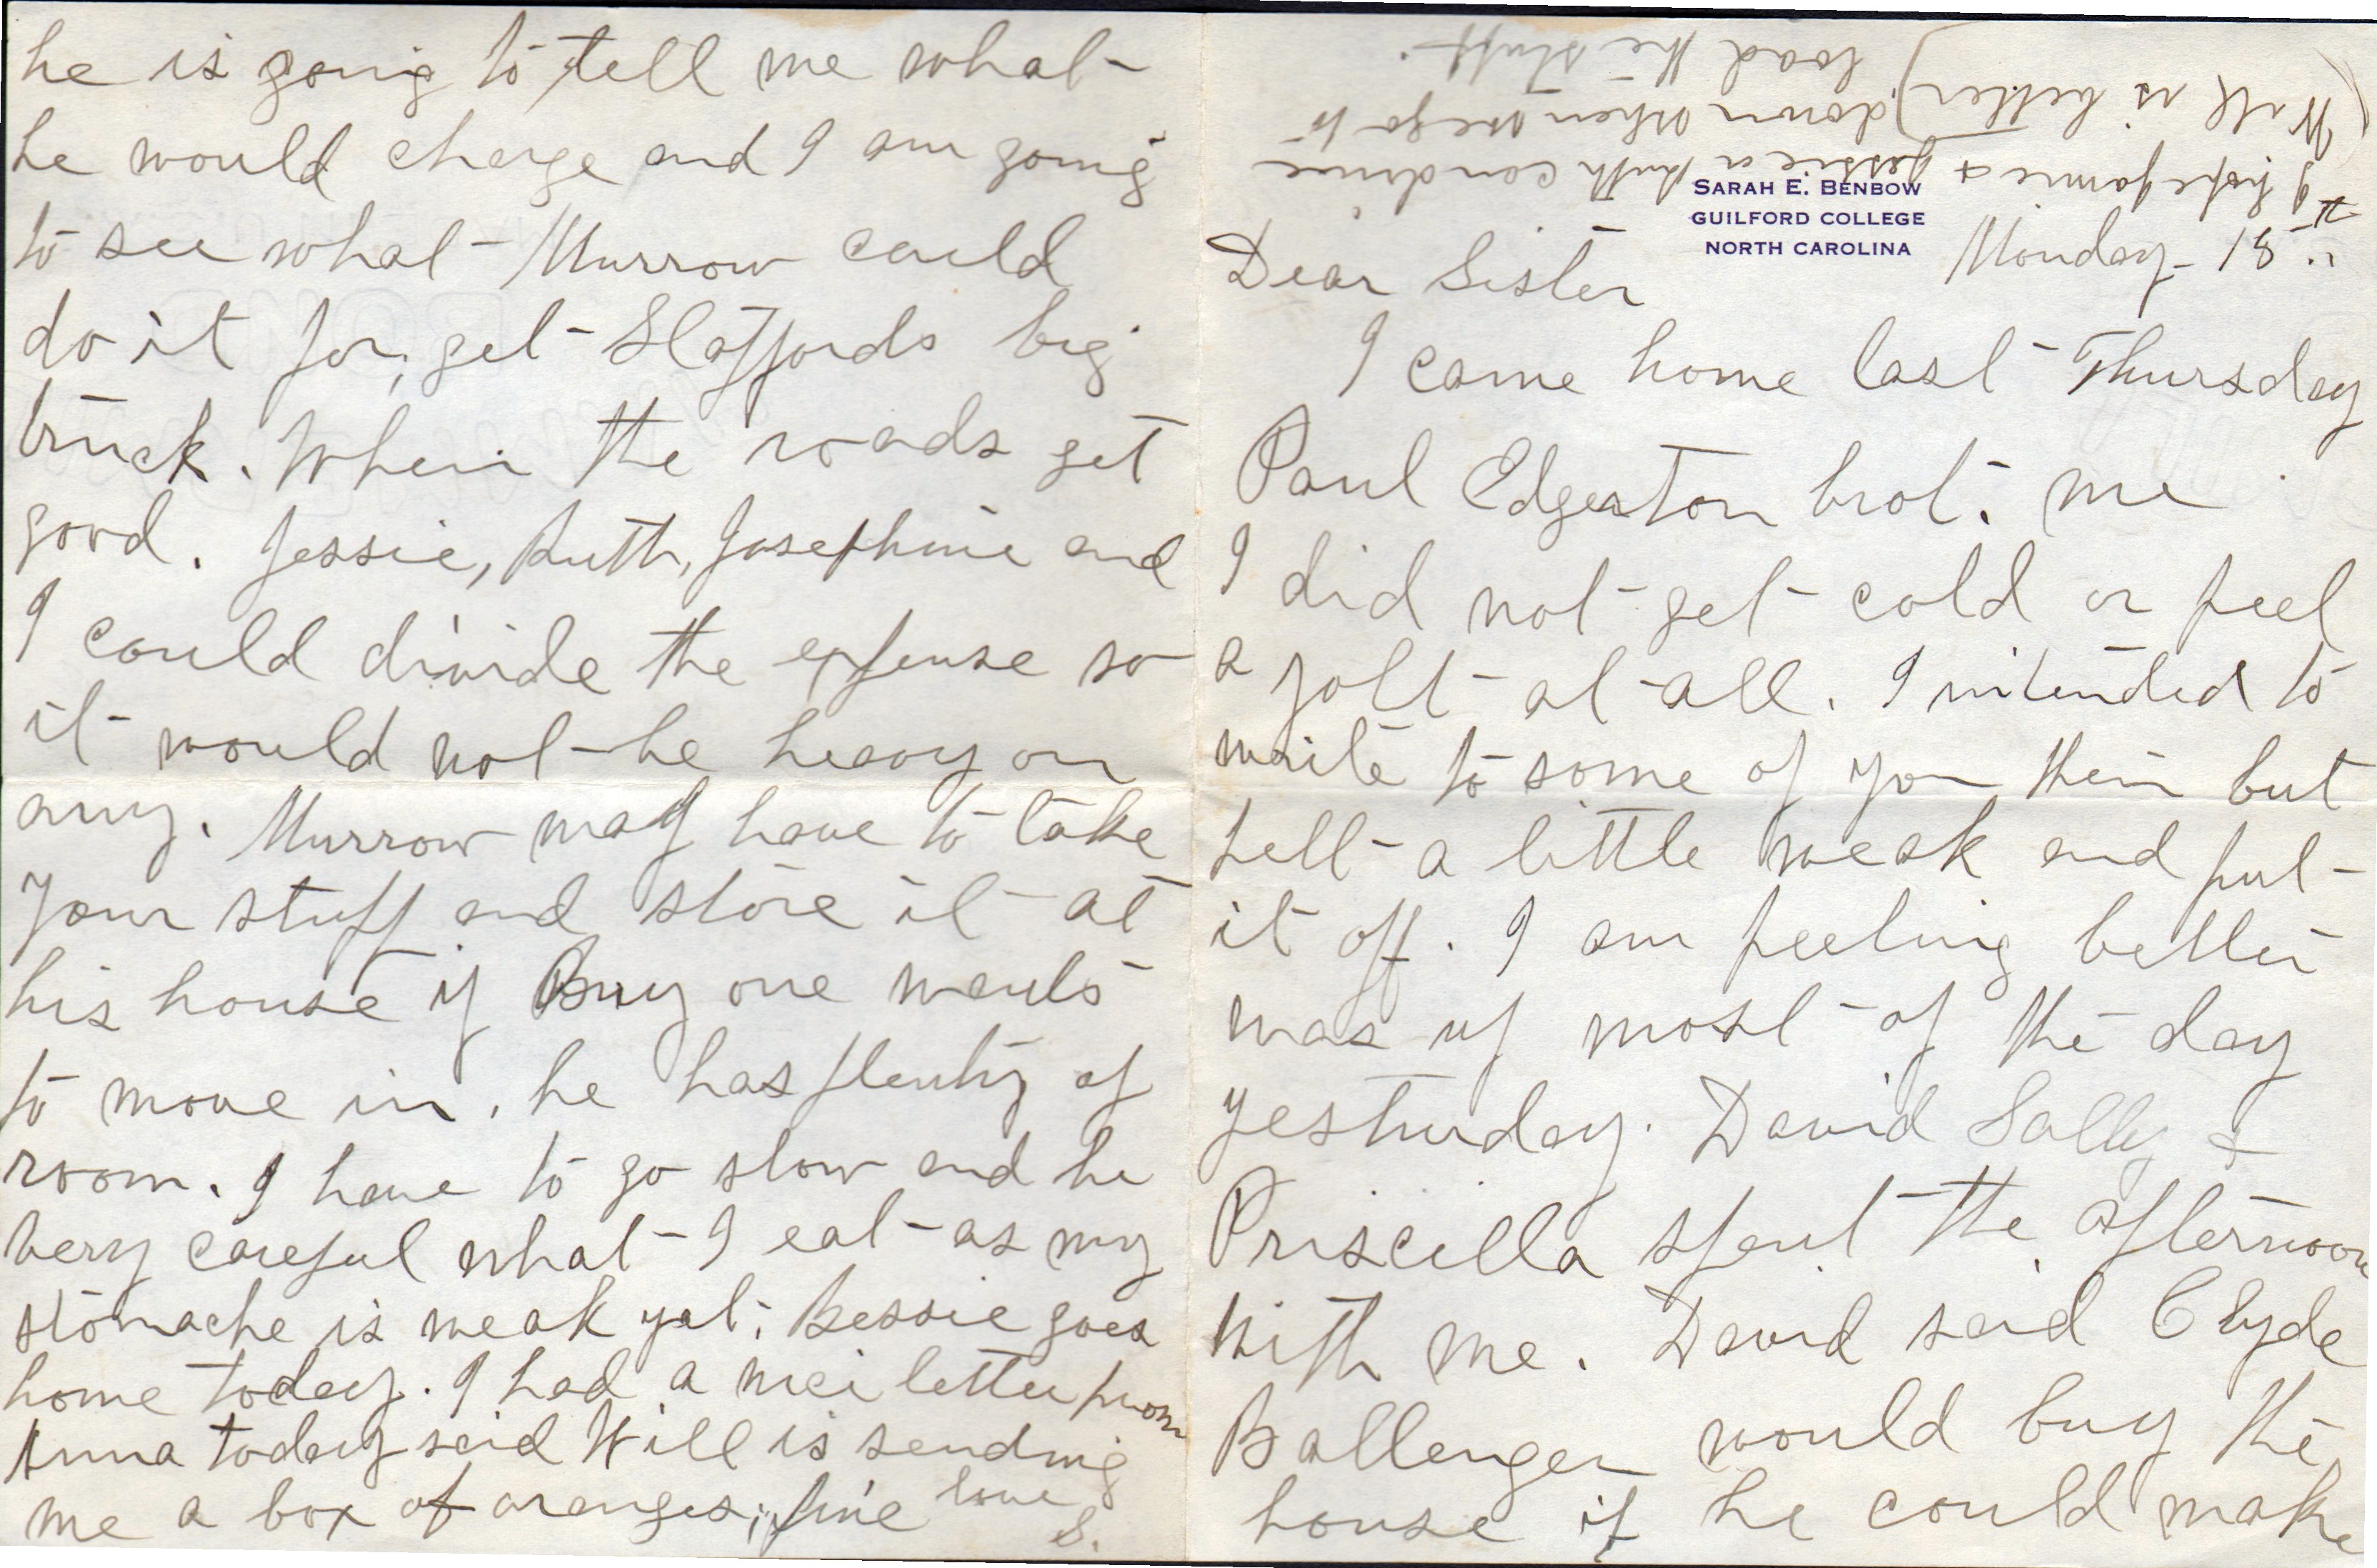 SARAH E. BENBOW
GUILFORD COLLEGE
NORTH CAROLINA
Monday - 18th
Dear Sister
I came home last Thursday
Paul Edgerton brot. me
I did not get cold or feel
a jolt at all. I intended to
write to some of you then but
felt a little weak and put
it off. I am feeling better
was up most of the day
yesturday. David Sally &
Priscilla spent the afternoon
with me. David said Clyde
Ballenger would buy the
house if he could make
he is going to tell me what
he would charge and I am going
to see what Murrow could
do it for, get Staffords big
truck. When the roads get
good. Jessie, Ruth, Josephine and
I could divide the expense so
it would not be heavy on
any. Murrow may have to take
your stuff and store it at
his house if any one wants
to move in. he has plenty of
room. I have to go slow and be
very careful what I eat as my
stomache is weak yet. Bessie goes
home today. I had a nice letter from
Anna today said Will is sending
me a box of oranges; fine love
S.
I hope Jamie & Jessie or Ruth can drive
(Will is better) down when we go to
load the stuff.